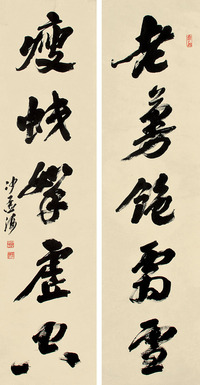 老蔓飽霜雪
瘦蛟挐虛空
沙孟海